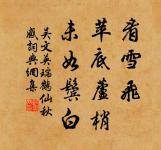 看雪飛
苹底蘆梢
未如鬢白
吳文英瑞鶴仙秋
感詞典網集